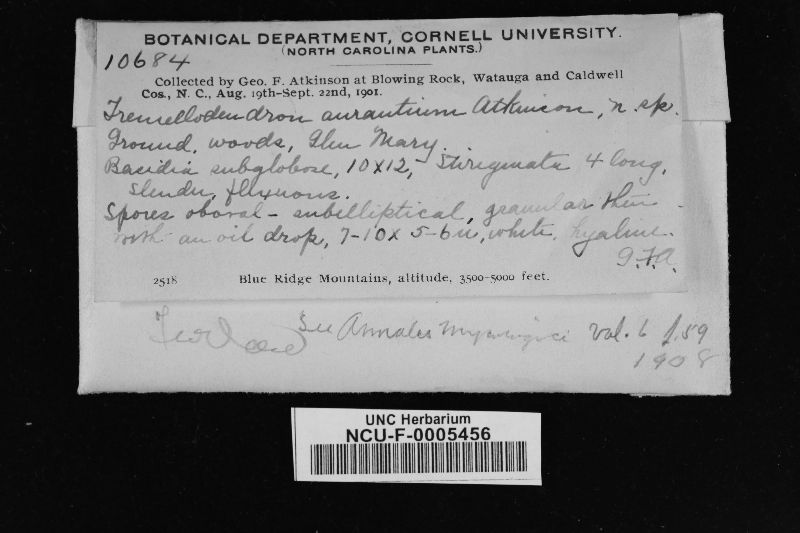 BOTANICAL DEPARTMENT, CORNELL UNIVERSITY.
(NORTH CAROLINA PLANTS.)
10684
Collected by Geo. F. Atkinson at Blowing Rock, Watauga and Caldwell
Cos., N. C., Aug. 19th-Sept. 22nd, 1901.
Tremellodendron aurantium Atkinson, n. sp.
Ground, woods, Glen Mary.
Basidia subglobose, 10x12, Sterigmata 4 long,
slender, flexuous.
Spores oboval - subelliptical, granular then
with an oil drop, 7-10 x 5-6 u, white, hyaline.
G.F.A.
2518 Blue Ridge Mountains, altitude, 3500-5000 feet.
See Annales Mycologici Vol. 6 p. 59
1908
UNC Herbarium
NCU-F-0005456